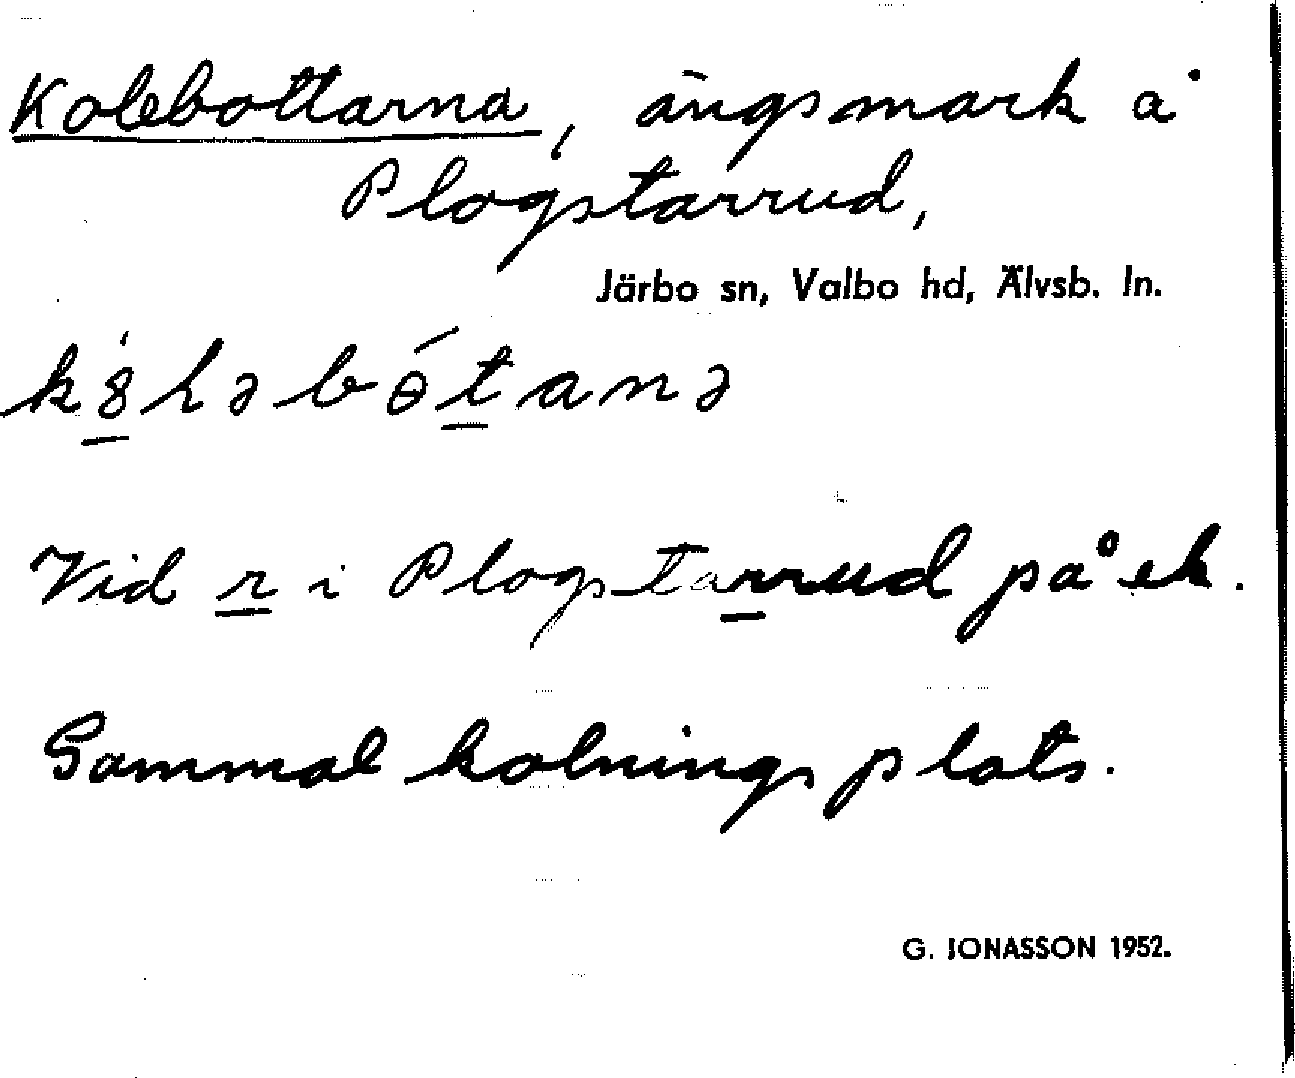 Kolebottarna, ängsmark å
Plogstarrud,
Järbo sn, Valbo hd, Älvsb. ln.
Vid r i Plogstarrud på ek.
Gammal kolningsplats.
G. JONASSON 1952.